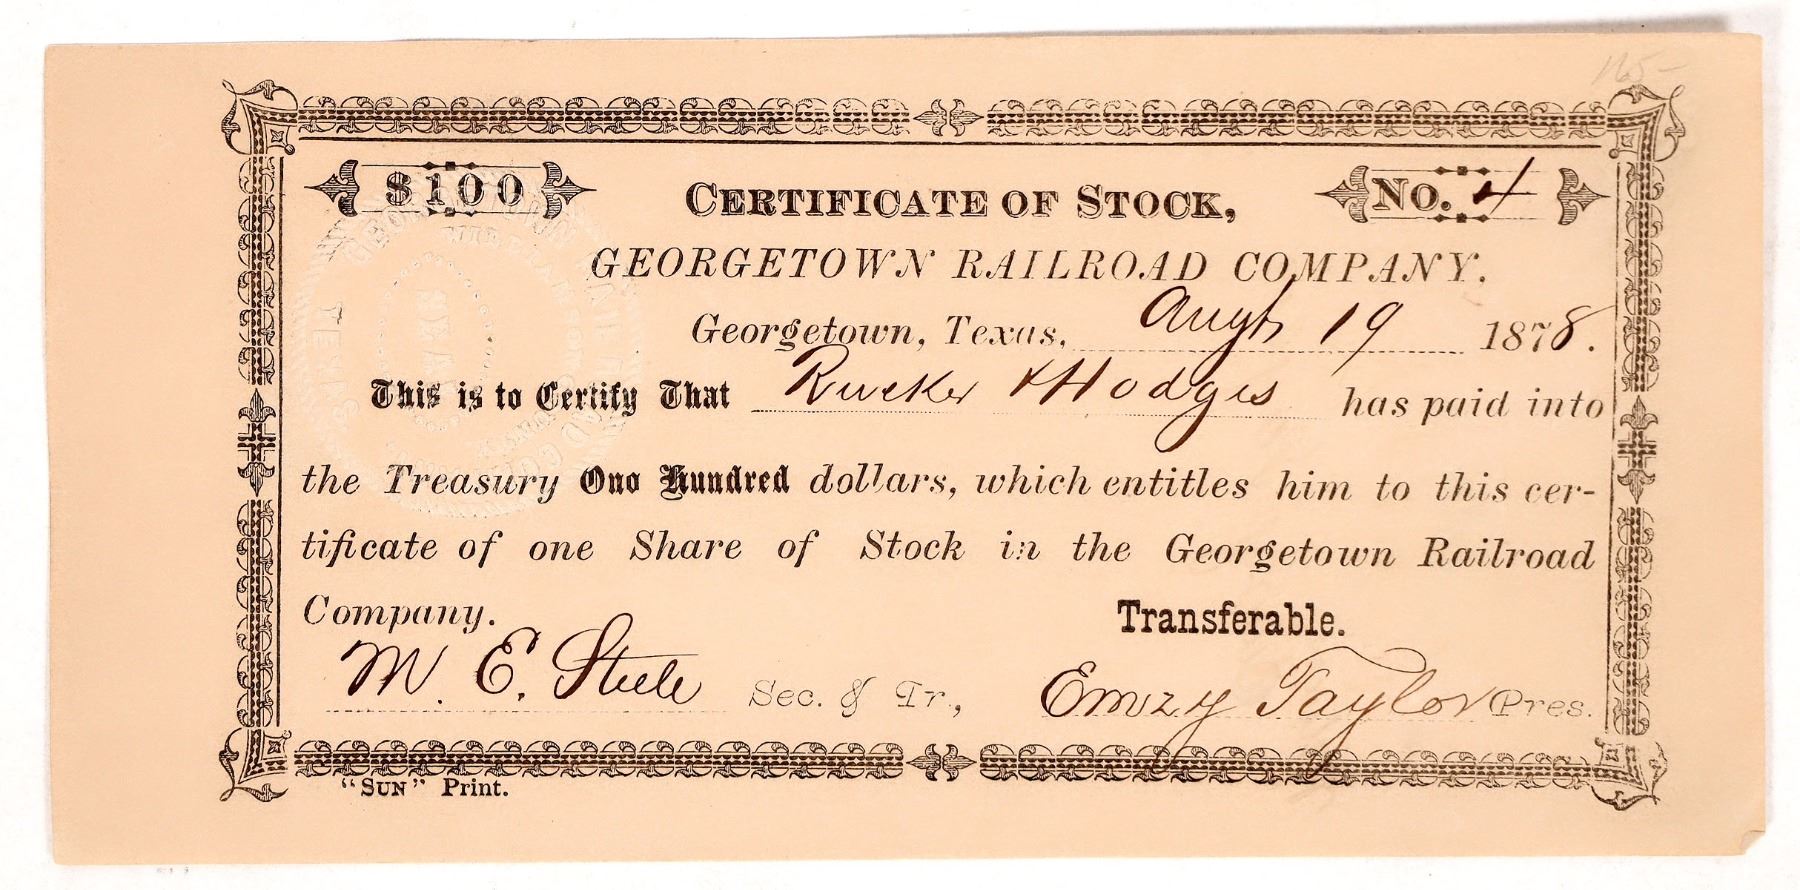 165-
$100
CERTIFICATE OF STOCK,
No. 4
GEORGETOWN RAILROAD COMPANY.
Georgetown, Texas, Augt 19 1878.
This is to Certify That Rucker & Hodges has paid into
the Treasury One Hundred dollars, which entitles him to this cer-
tificate of one Share of Stock in the Georgetown Railroad
Company.
Transferable.
M. E. Steele Sec. & Tr., Emzy Taylor Pres.
"SUN" Print.
GEORGETOWN RAIL ROAD COMPANY
TEXAS
SEAL